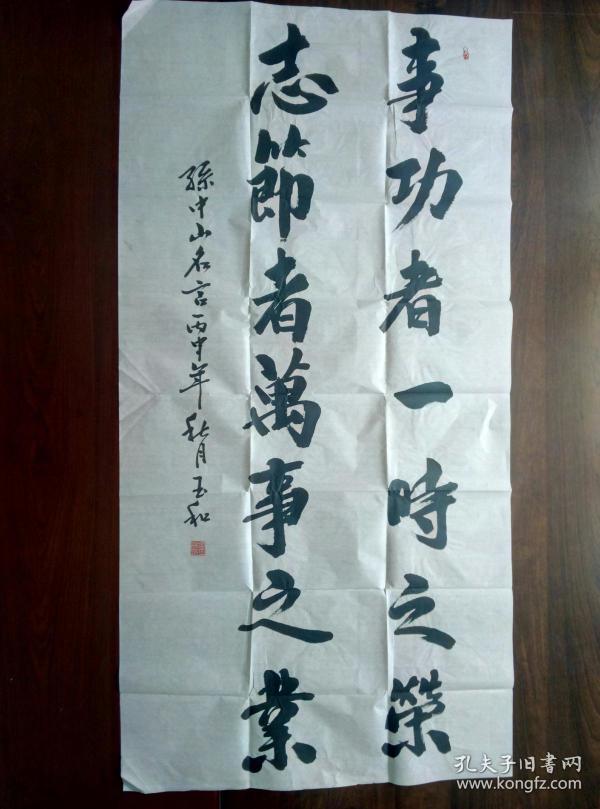 事功者一時之榮
志節者萬事之業
孫中山名言丙申年秋月玉和
孔夫子旧书网
www.kongfz.com